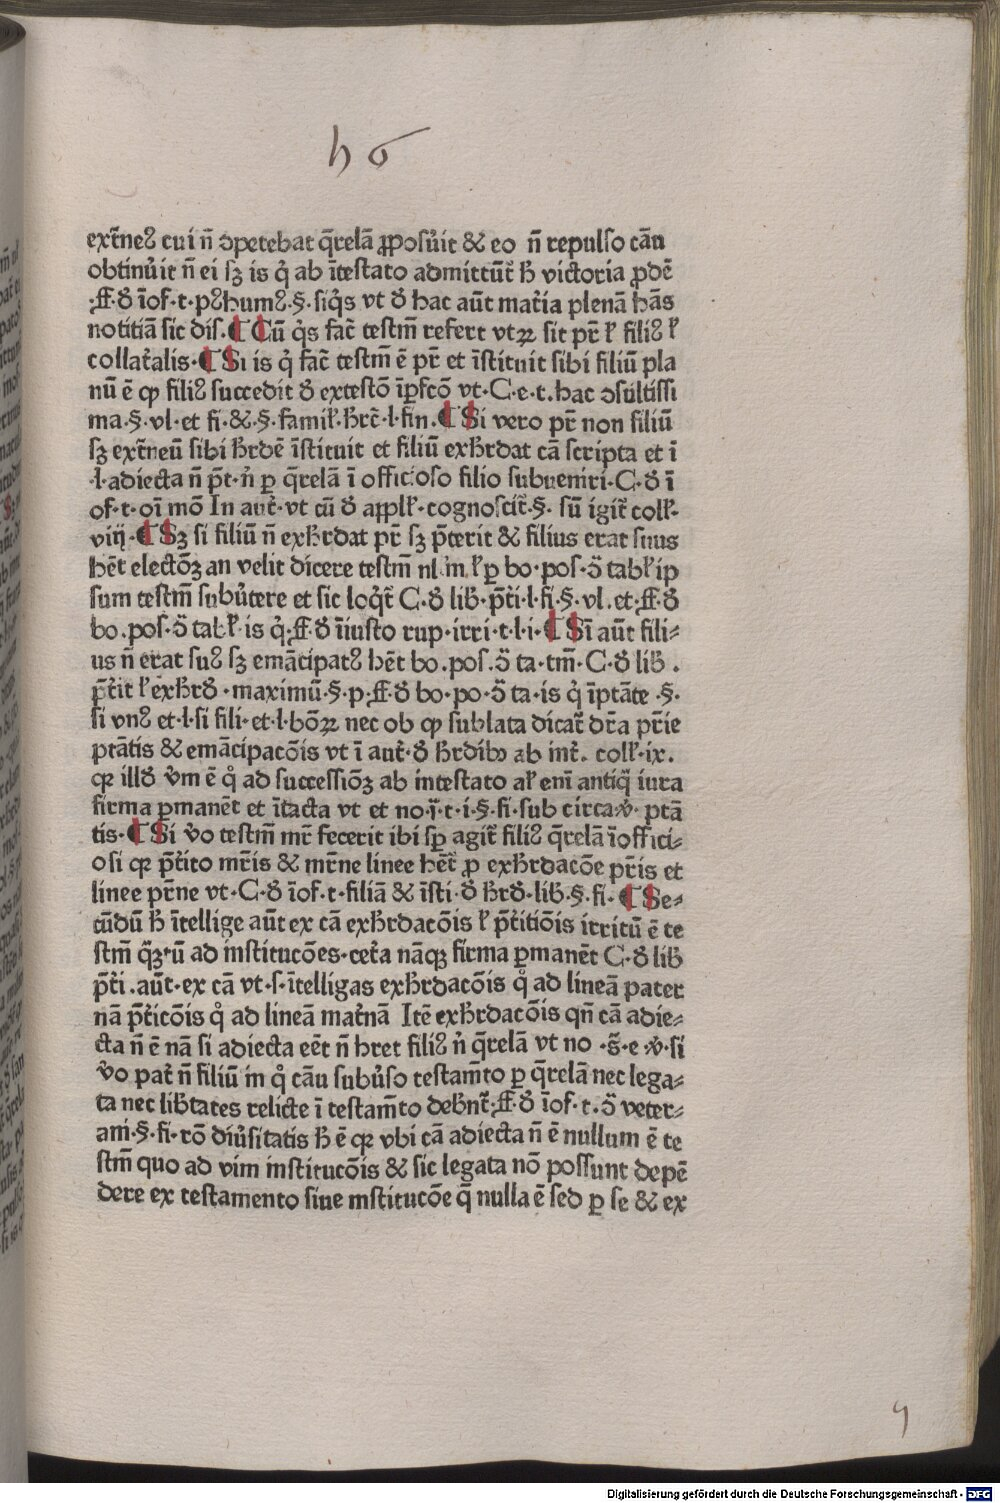 h 6
ext̄neꝰ cui n̄ ↄpetebat q̄relā ꝓposu̓it & eo n̄ repulso cāu
obtinu̓it n̄ ei sꝫ is q̊ ab ītestato admittūt᷑ ħ victoria ꝓdē
.ff.ð īof.t.pꝰhumꝰ.§.siq̊s vt ð hac aūt mat̓ia plenā hn̄s
notitiā sic dis. ¶ Cū q̊s fac̄ testm̄ refert vtꝝ sit pr̄ ł filiꝰ ł
collat̓alis. ¶ Si is q̊ fac̄ testm̄ ē pr̄ et īstituit sibi filiū pla
nū ē ꝙ filiꝰ succedit ð extestō īꝑfcō vt.C.e.t.hac ↄsultissi
ma.§.vl.et fi.&.§.famił.ħrc̄.l.fin. ¶ Si vero pr̄ non filiū
sꝫ ext̄neū sibi ħrdē īstituit et filiū exħrdat cā scripta et ī
.l.adiecta n̄ p̄t.n̓ ꝑ q̄relā ī officioso filio subueniri.C.ð ī
of.t.oī mō In aut̓.vt cū ð appłł.cognoscit᷑.§. sū igit᷑ colł.
viij. ¶ Sꝫ si filiū n̄ exħrdat pr̄ sꝫ p̄terit & filius erat suus
hēt electōꝫ an velit dicere testm̄ nl m ł ꝑ bo.pos.ↄ̄ tabł ip
sum testm̄ subu̓tere et sic loq̓t᷑ C.ð lib̓.p̄t̓i.l.fi.§.vl.et.ff.ð
bo.pos.ↄ̄ tabł.is q̊.ff.ð īiusto rup.irri.t.l.i. ¶ Sī aūt fili⸗
us n̄ erat suꝰ sꝫ emācipatꝰ hēt bo.pos.ↄ̄ ta.tm̄.C.ð lib̓.
p̄t̓it ł exħrð.maximū.§.p.ff.ð bo.po.ↄ̄ ta.is q̊ īptāte.§.
si vnꝰ et.l.si fili.et.l.bōꝝ nec ob ꝙ sublata dicat᷑ dr̄a pr̄ie
ptātis & emācipacōis vt ī aut̓.ð ħrdibꝰ ab int̓. colł.ix.
qꝛ illð v̓m ē q̊ ad successiōꝫ ab intestato ał enī antiq̄ iura
firma ꝑmanēt et ītacta vt et no.ī.t.i.§.fi.sub circa.v̓. ptā
tis. ¶ Si v̓o testm̄ mr̄ fecerit ibi sꝑ agit᷑ filiꝰ q̄relā īoffici⸗
osi qꝛ p̄t̓ito mr̄is & mr̄ne linee hēt᷑ ꝓ exħrdacōe pr̄is et
linee pr̄ne vt.C.ð īof.t.filiā & īsti.ð ħrð.lib̓.§.fi. ¶ Se⸗
cūdū ħ ītellige aūt ex cā exħrdacōis ł p̄t̓itiōis irritū ē te
stm̄ q̄ꝫtū ad institucōes.cet̓a nāqꝫ firma ꝑmanēt C.ð lib̓
p̄t̓i.aūt.ex cā vt.s.ītelligas exħrdacōis q̊ ad lineā pater
nā p̄t̓icōis q̊ ad lineā mat̓nā Itē exħrdacōis qn̄ cā adie⸗
cta n̄ ē nā si adiecta eēt n̄ hret filiꝰ n̓ q̄relā vt no .s̄.e v̓.si
v̓o pat̓ n̄ filiū in q̊ cāu subu̓so testam̄to ꝑ q̄relā nec lega⸗
ta nec lib̓tates relicte ī testam̄to deb̄nt᷑.ff.ð īof.t.ↄ̄ veter⸗
ani.§.fi.rō diu̓sitatis ħ ē qꝛ vbi cā adiecta n̄ ē nullum ē te
stm̄ quo ad vim institucōis & sic legata nō possunt depē
dere ex testamento siue institucōe q̄ nulla ē sed ꝑ se & ex
Digitalisierung gefördert durch die Deutsche Forschungsgemeinschaft - DFG